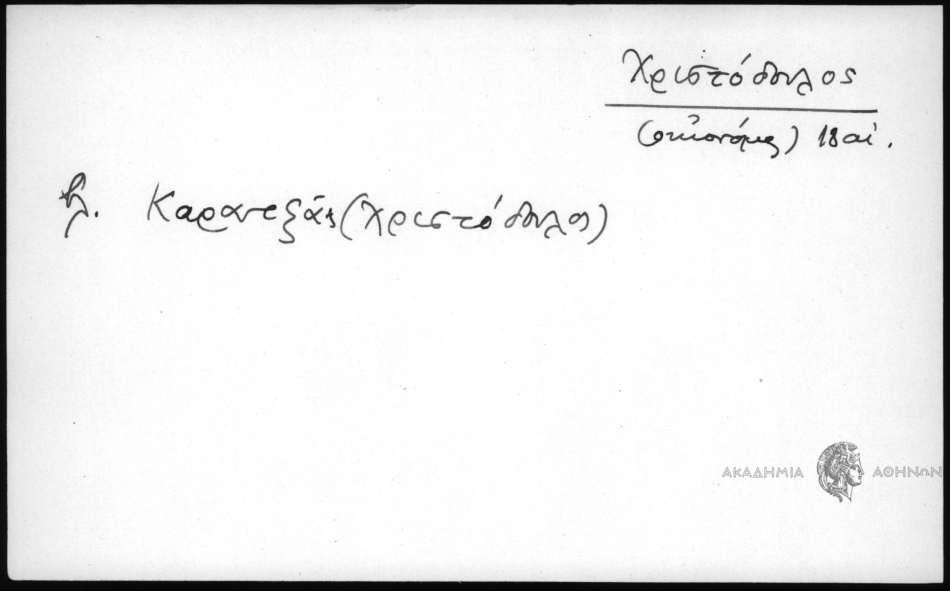 Χριστόδουλος
(οικονόμος) 18 αἰ.
βλ. Καραντζᾶς (Χριστόδουλος)
ΑΚΑΔΗΜΙΑ ΑΘΗΝΩΝ